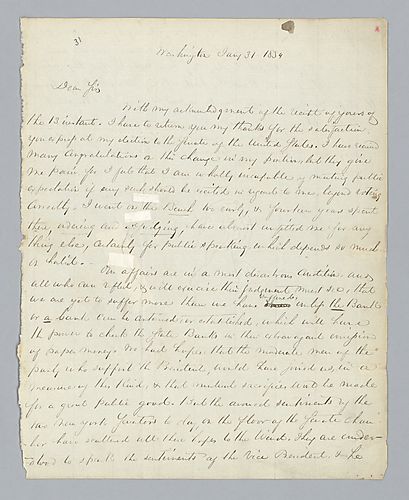 31
Washington Jany 31 1834
Dear Sir
With my acknowledgment of the receipt of yours of
the 13 instant. I have to return you my thanks for the satisfaction
you express at my election to the Senate of the United States. I have received
many congratulations on this change in my position, but they give
me pain for I feel that I am wholly incapable of meeting public
expectation if any such should be excited in regard to me, beyond voting
honestly. I went on the Bench too early, & fourteen years spent
there, and judging have almost unfitted me for any
thing else, certainly for public speaking which depends so much
on habit.
Our affairs are in a most disastrous condition and
all who can reflect, & will exercise their judgment must see, that
we are yet to suffer more than we have unless the Bank
or a bank can be restored or established, which will have
the power to check the State Banks in their extravagant emission
of paper money. We had hopes that the moderate men of the
party who support the President, would have joined us, in a
measure of this kind, & that mutual sacrifices would be made
for a great public good. But the avowed sentiments of the
two New York Senators to day on the floor of the Senate Cham
ber have scattered all these hopes to the Wind. They are under-
stood to speak the sentiments of the Vice President, & he